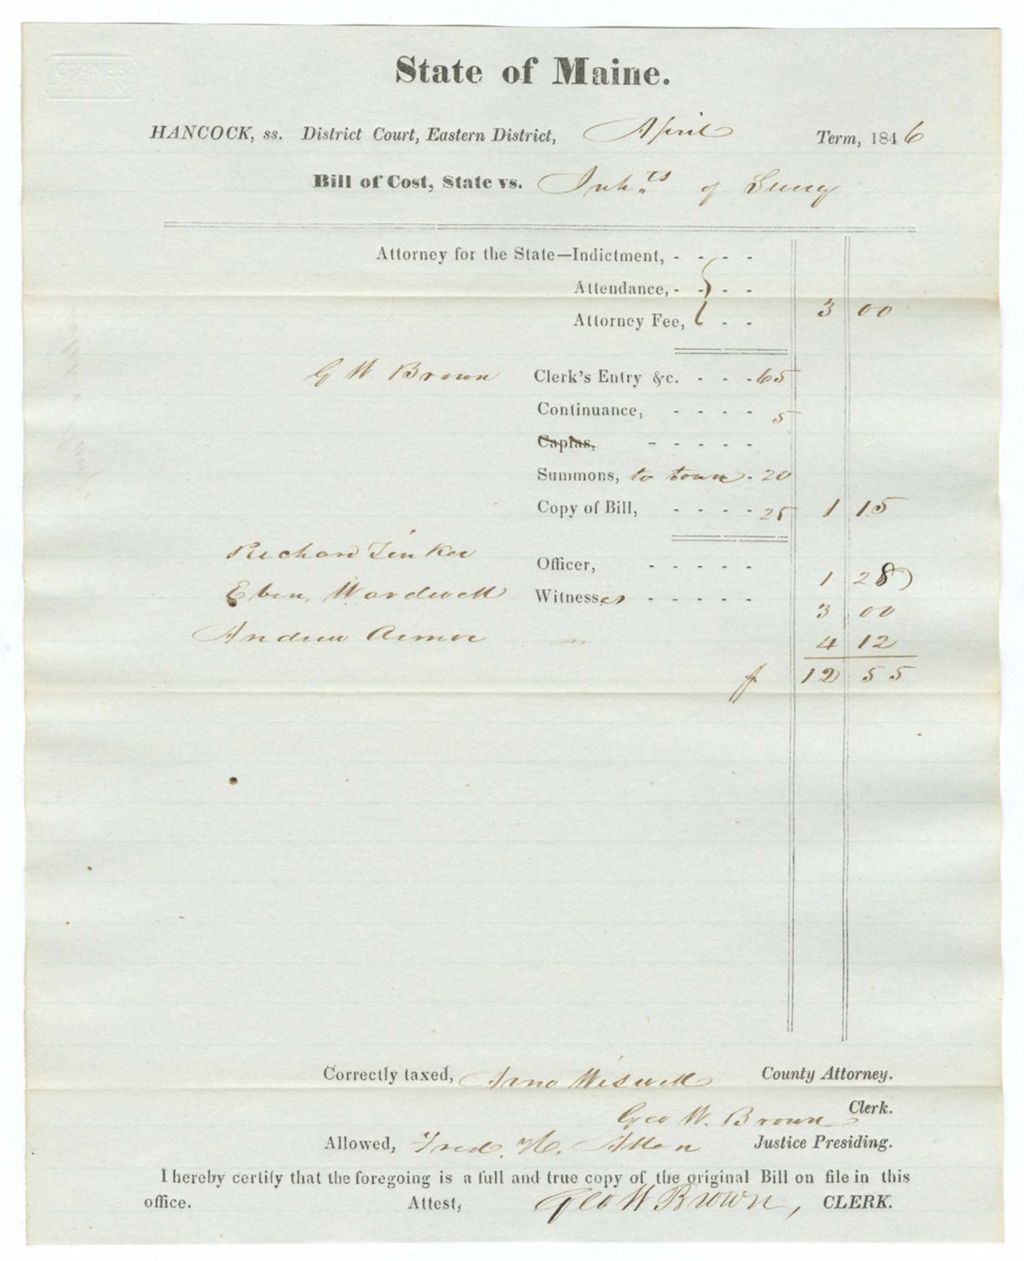 CRANE'S
State of Maine.
HANCOCK, ss. District Court, Eastern District, April Term, 1846
Bill of Cost, State vs. Inhts of Surry
Attorney for the State—Indictment, - - - -
Attendance, - - - -
Attorney Fee, - - 3 00
G W Brown Clerk's Entry &c. - - - 65
Continuance, - - - - 5
Capias, - - - - -
Summons, to town - 20
Copy of Bill, - - - - 25 1 15
Richard Tinker Officer, - - - - - 1 28
Eben. Wardwell Witnesses - - - - - 3 00
Andrew 4 12
12 55
Correctly taxed, Arno Wiswell County Attorney.
Geo W. Brown Clerk.
Allowed, Fred. H. Allen Justice Presiding.
I hereby certify that the foregoing is a full and true copy of the original Bill on file in this
office. Attest, Geo W Brown, CLERK.